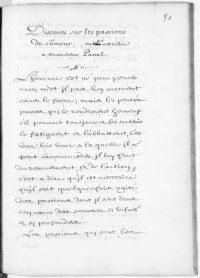 90
Discours sur les passions
de l'amour, 
a monsieur Pascal
L'homme est né pour penser
aussi n'est il pas un moment
sans le faire; mais les pensées
pures qui le rendroient heureux
s'il pouvoit toujours les
le fatiguent et l'abbattent, c'est
une vie unie a laquelle il ne
peut s'accommoder, il luy faut
du remuement et de l'action,
c'est a dire qu'il est necessaire
qu'il soit quelquefois agité
des passions dont il sent dans
son coeur des sources si vives
et si profondes
Les passions qui sont